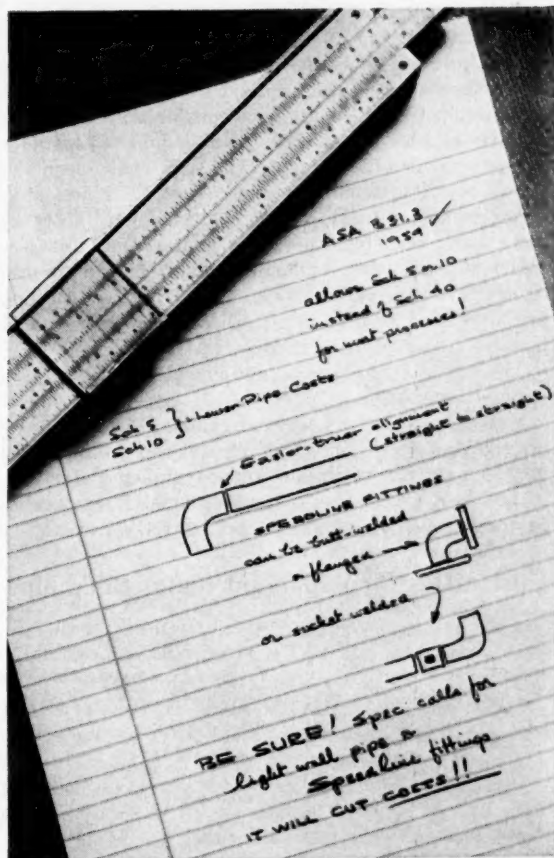 ASA B31.3
1959 ✓
allows Sch 5 or 10
instead of Sch 40
for most processes!
Sch 5
Sch 10 } = Lower Pipe Costs
Easier-truer alignment
(straight to straight)
SPEEDLINE FITTINGS
can be butt-welded
or flanged →
or socket welded
BE SURE! Spec. calls for
light wall pipe &
Speedline fittings
IT WILL CUT COSTS!!